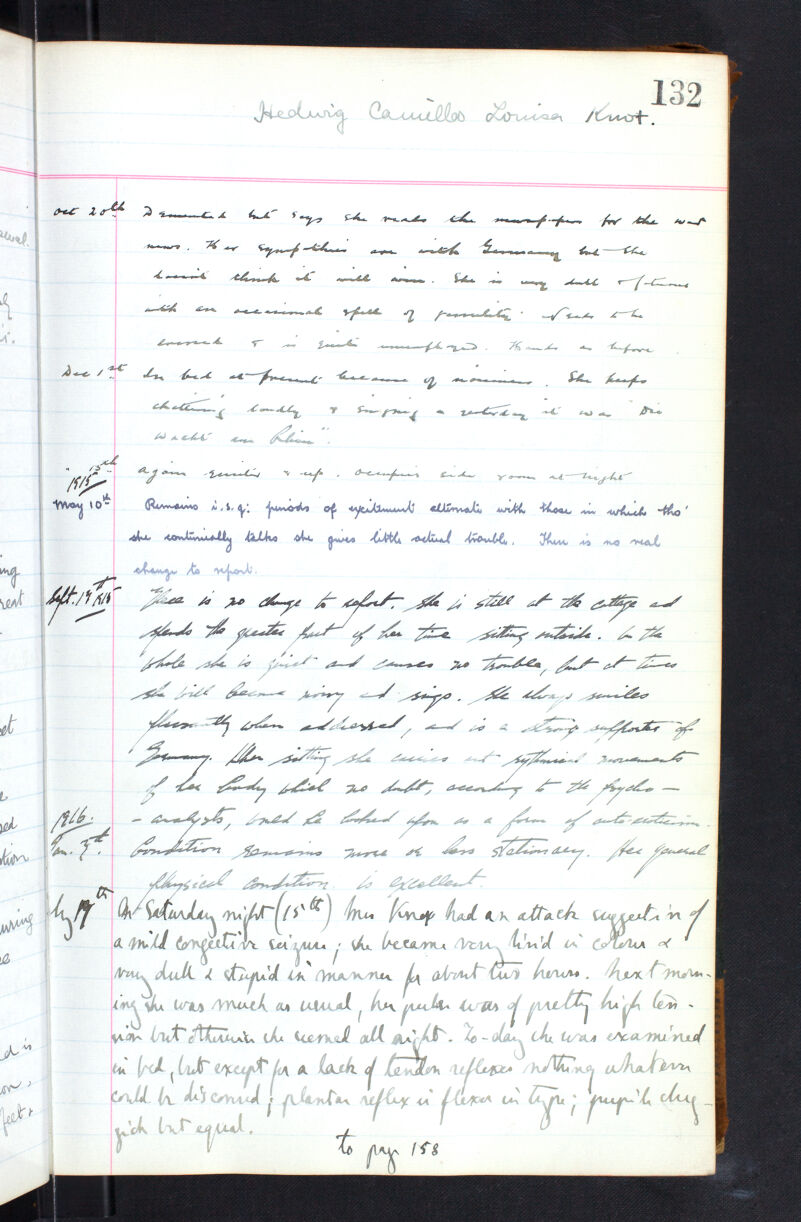 132
Hedwig Camilla Louisa Knox.
Oct 20th Demented but says she reads the newspapers for the war
news. Her sympathies are with Germany but she
doesn't think it will win. She is very dull &
with an occasional spell of Needs to be
& is quite unemployed. Thanks as before.
Dec 1st In bed at present because of noisiness. She keeps
chattering loudly & singing & yesterday it was "Die
Wacht am Rhein".
" 15th again quieter & up. Occupies side room at night
1915
May 10th Remains i.s.q: periods of excitement alternate with those in which tho'
she continually talks she gives little actual trouble. There is no real
change to report.
Sept. 17th 1915 There is no change to report. She is still at the cottage and
spends the greater part of her time sitting outside. On the
whole she is quiet and causes no trouble, but at times
she will become noisy and sings. She always smiles
pleasantly when addressed, and is a strong supporter of
Germany. When sitting she carries out rythmical movements
of her body which no doubt, according to the psycho-
-analysts, would be looked upon as a form of auto-eroticism.
1916.
Jan. 3th. Condition remains more or less stationary. Her general
physical condition is excellent.
17th On Saturday night (15th) Miss Knox had an attack suggestive of
a mild congestive seizure; she became very livid in colour &
very dull & stupid in manner for about two hours. Next morn-
ing she was much as usual, her pulse was of pretty high ten-
sion but otherwise she seemed all right. To-day she was examined
in bed, but except for a lack of tendon reflexes nothing whatever
could be discovered; plantar reflex is flexor in type; pupils slug-
gish but equal.
to page 158